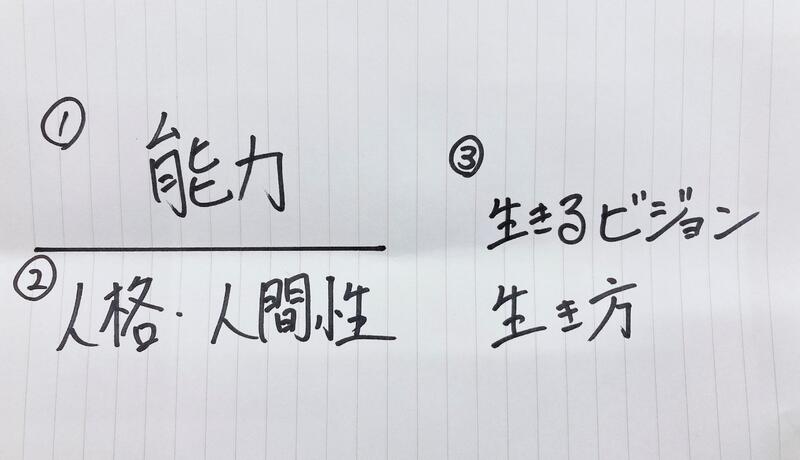 ①
能力
②
人格・人間性
③
生きるビジョン
生き方